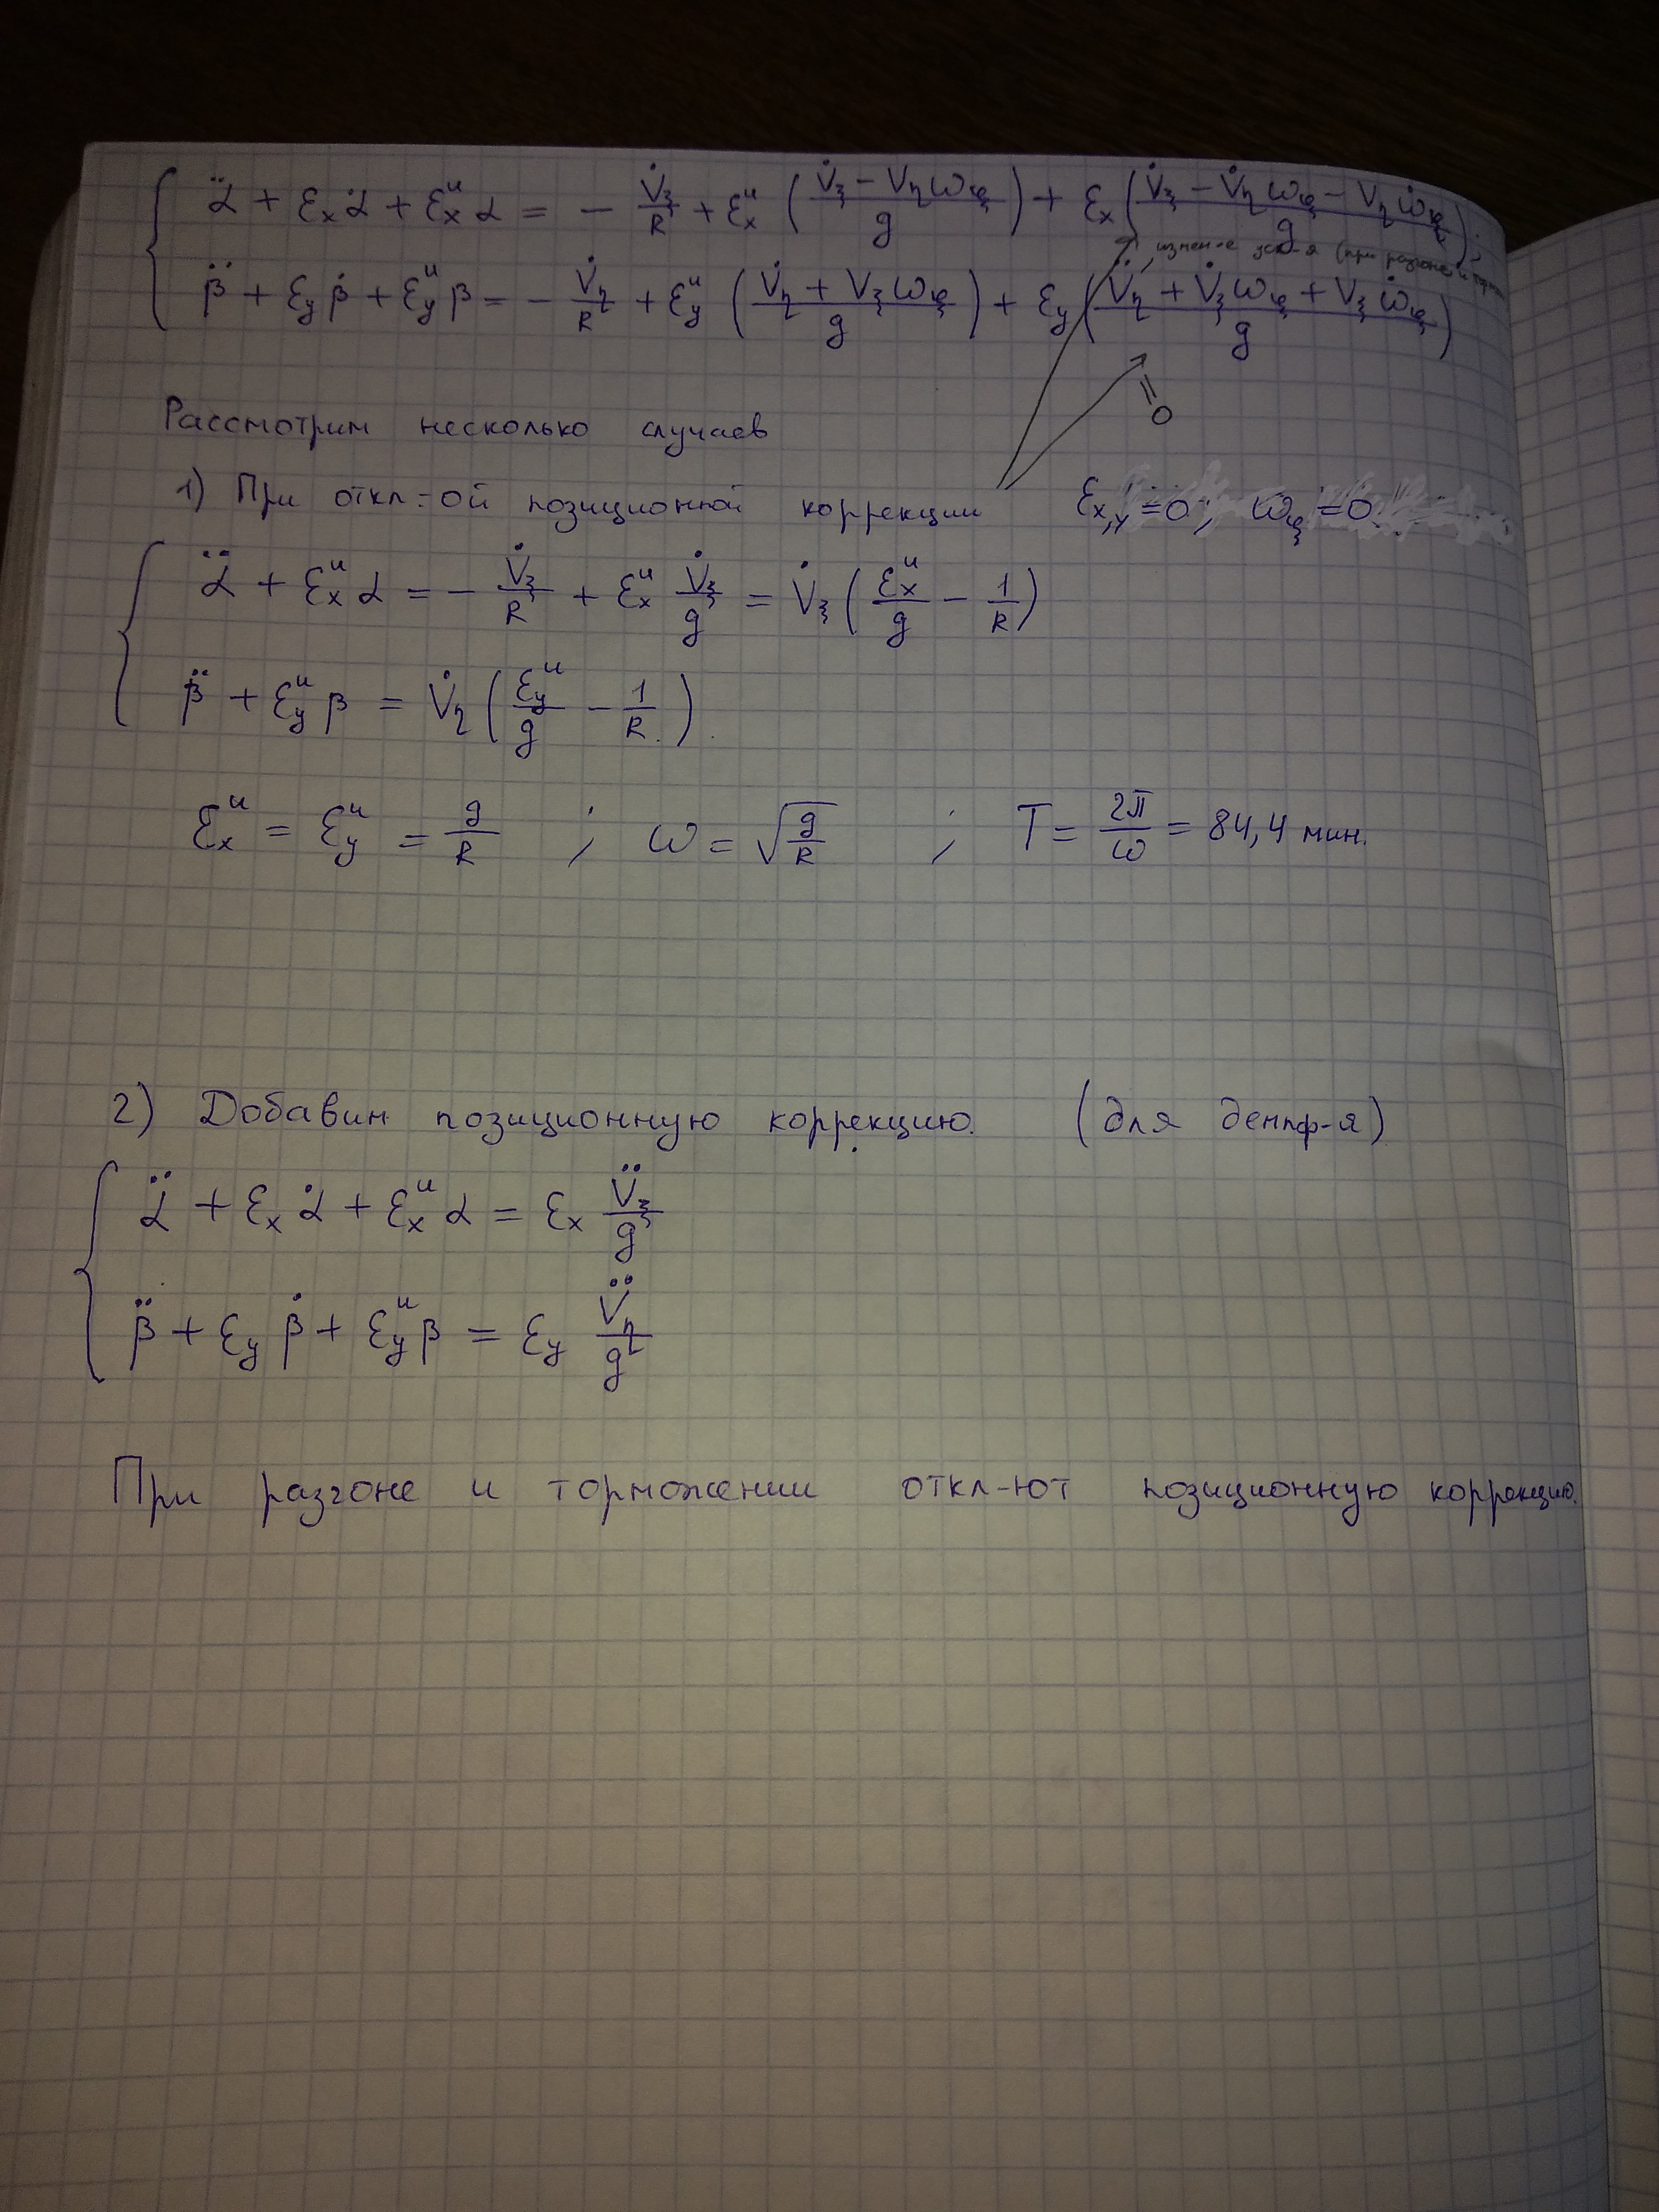 α̈ + εₓα̇ + εₓᵘα = − V̇ξ/R + εₓᵘ((V̇ξ − Vηωζ)/g) + εₓ((V̇ξ − V̇ηωζ − Vηω̇ζ)/g);
измен-е уск-я (при разгоне и
β̈ + εᵧβ̇ + εᵧᵘβ = − V̇η/R + εᵧᵘ((V̇η + Vξωζ)/g) + εᵧ((V̇η + V̇ξωζ + Vξω̇ζ)/g)
= 0
Рассмотрим несколько случаев
1) При откл-ой позиционной коррекции εx,y = 0; ωζ = 0.
α̈ + εₓᵘα = − V̇ξ/R + εₓᵘ V̇ξ/g = V̇ξ(εₓᵘ/g − 1/R)
β̈ + εᵧᵘβ = V̇η(εᵧᵘ/g − 1/R).
εₓᵘ = εᵧᵘ = g/R ; ω = √(g/R) ; T = 2π/ω = 84,4 мин.
2) Добавим позиционную коррекцию. (для демпф-я)
α̈ + εₓα̇ + εₓᵘα = εₓ V̈ξ/g
β̈ + εᵧβ̇ + εᵧᵘβ = εᵧ V̈η/g
При разгоне и торможении откл-ют позиционную коррекцию.